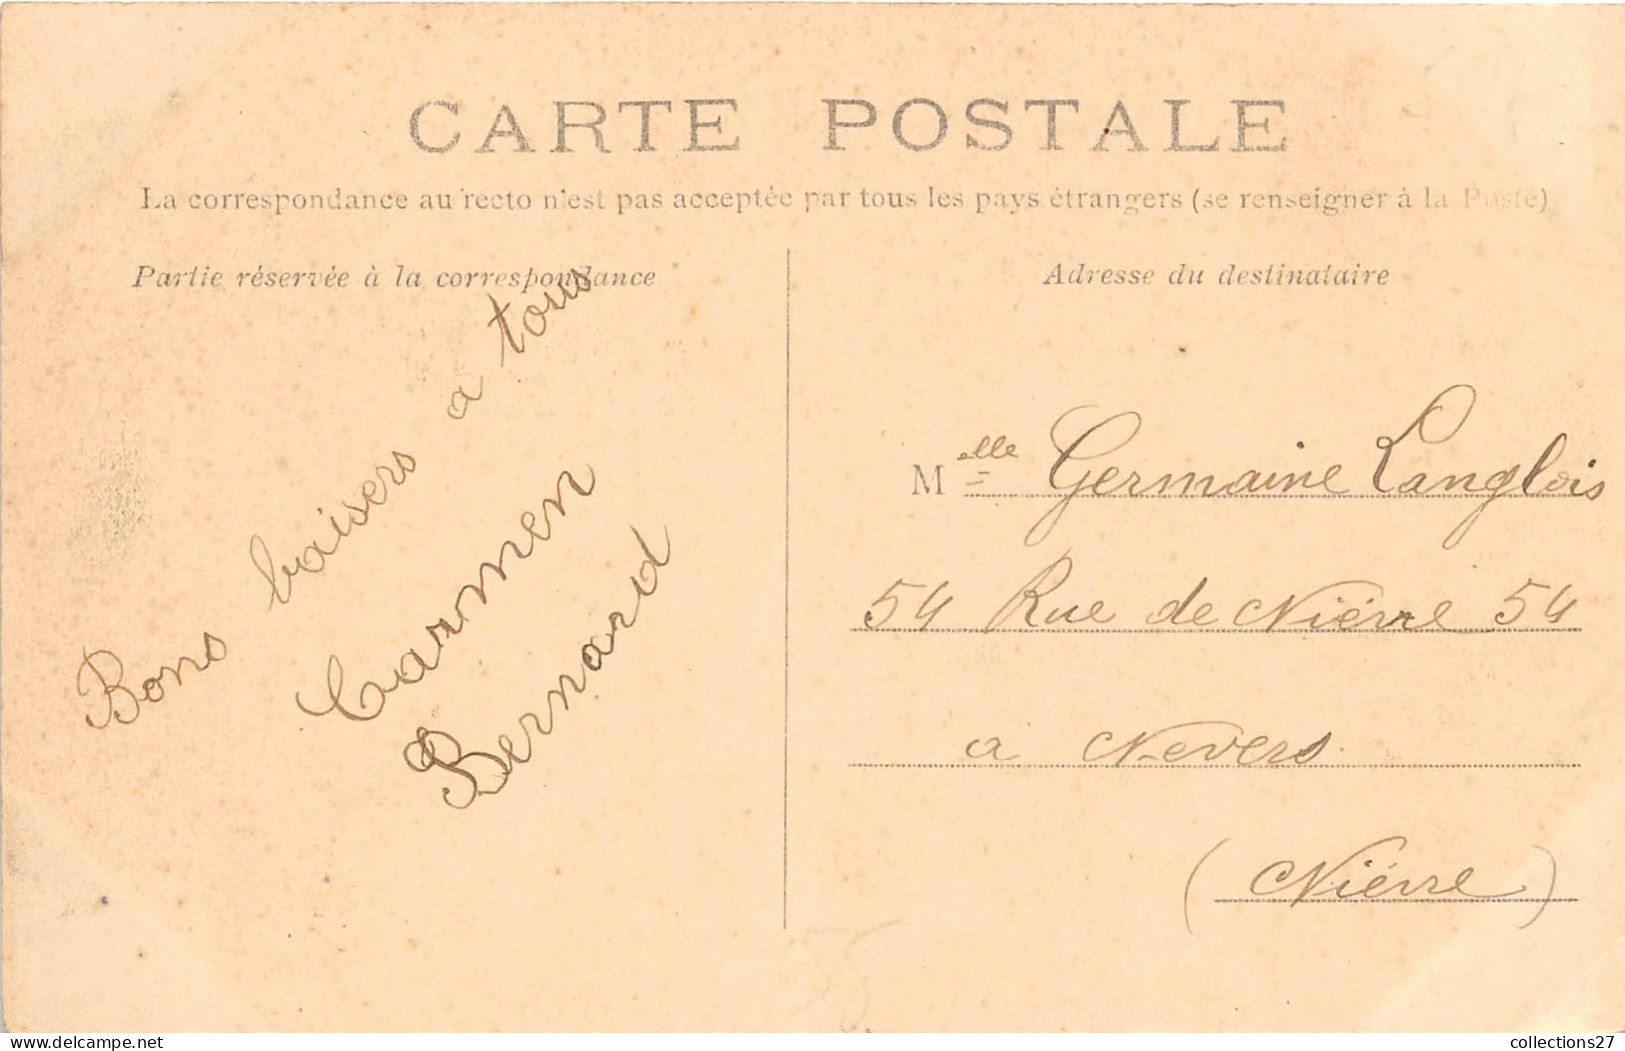 CARTE POSTALE
La correspondance au recto n'est pas acceptée par tous les pays étrangers (se renseigner à la Poste)
Partie réservée à la correspondance
Bons baisers a tous
Carmen
Bernard
Adresse du destinataire
Melle Germaine Langlois
54 Rue de Nièvre 54
a Nevers
(Nièvre)
delcampe.net
collections27